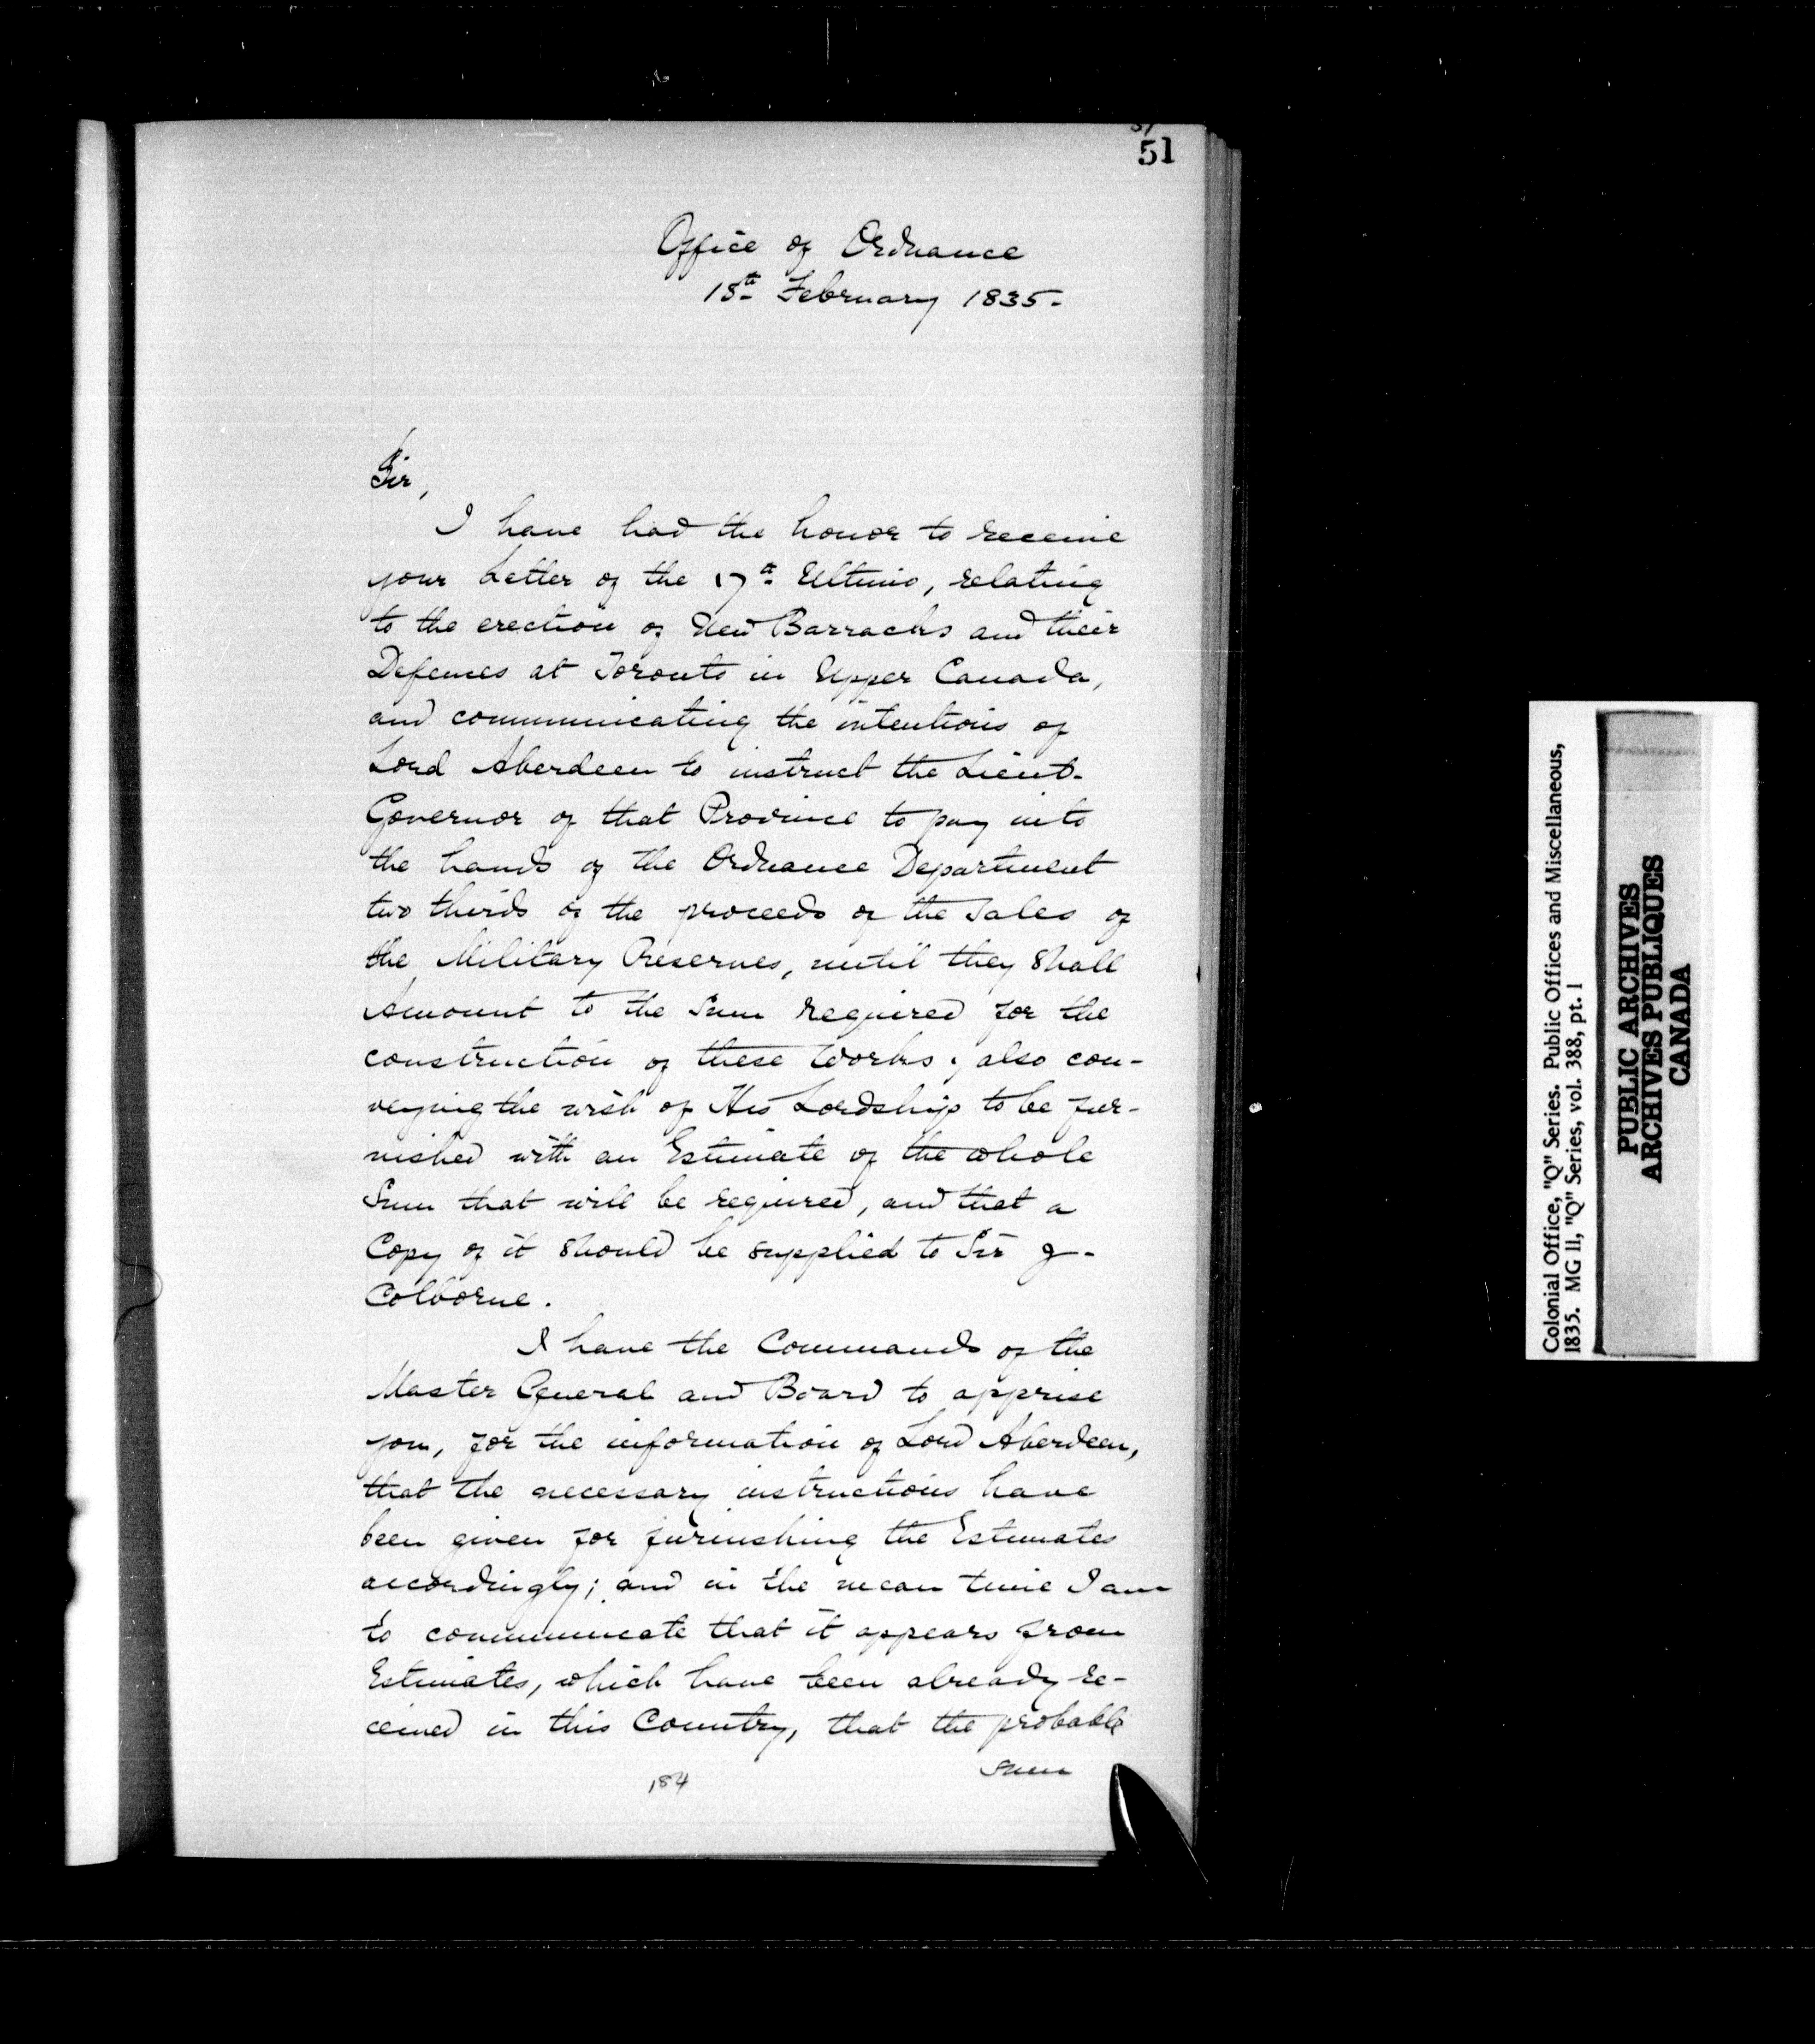 51
51
Office of Ordnance
18th February 1835-
Sir,
I have had the honor to receive
your Letter of the 17th Ultimo, relating
to the erection of New Barracks and their
Defences at Toronto in Upper Canada,
and communicating the intentions of
Lord Aberdeen to instruct the Lieut-
Governor of that Province to pay into
the hands of the Ordnance Department
two thirds of the proceeds of the Sales of
the Military Reserves, until they shall
Amount to the Sum required for the
construction of these Works; also con-
veying the wish of His Lordship to be fur-
nished with an Estimate of the whole
Sum that will be required, and that a
Copy of it should be supplied to Sir J-
Colborne.
I have the Commands of the
Master General and Board to apprise
you, for the information of Lord Aberdeen,
that the necessary instructions have
been given for furnishing the Estimates
accordingly; and in the mean time I am
to communicate that it appears from
Estimates, which have been already re-
ceived in this Country, that the probable
sum
184
Colonial Office, "Q" Series. Public Offices and Miscellaneous,
1835. MG 11, "Q" Series, vol. 388, pt. 1
PUBLIC ARCHIVES
ARCHIVES PUBLIQUES
CANADA